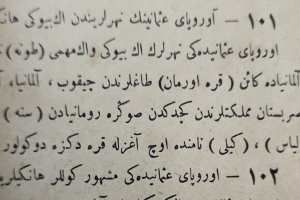 ١٠١ — آوروپای عثمانینك نهرلرندن اك بیوكی هانكی
اوروپای عثمانیده‌كی نهرلرك اك بیوكی واك مهمی (طونه)
آلمانیاده كائن ( قره اورمان ) طاغلرندن چیقوب ، آلمانیا ،
صربستان مملكتلرندن كچدكدن صوكره رومانیادن ( سنه )
لیاس ) ، ( كیلی ) نامنده اوچ آغزله قره دكزه دوكولور
١٠٢ — اوروپای عثمانیده‌كی مشهور كوللر هانكیلریدر